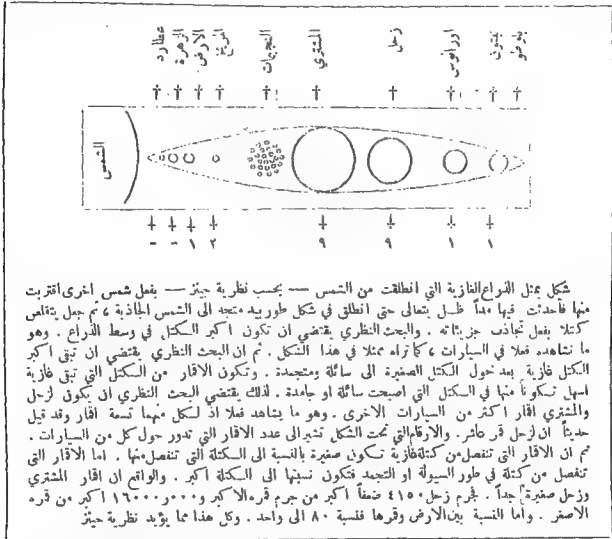 عطارد الزهرة الارض المريخ النجيمات المشتري زحل اورانوس نبتون بلوطو
الشمس
- - ١ ٢ ٩ ٩ ١ ١
شكل يمثل الذراع الغازية التي انطلقت من الشمس — بحسب نظرية جينز — بفعل شمس اخرى اقتربت
منها فأحدثت فيها مداً ظل يتعالى حتى انطلق في شكل طوربيد متجه الى الشمس الجاذبة ، ثم جعل يتقلص
كتلا بفعل تجاذف جزيئاته . والبحث النظري يقتضي ان تكون اكبر الكتل في وسط الذراع . وهو
ما نشاهده فعلا في السيارات ، كما تراه ممثلا في هذا الشكل . ثم ان البحث النظري يقتضي ان تبقى اكبر
الكتل غازية بعد تحول الكتل الصغيرة الى سائلة ومتجمدة . وتكون الاقمار من الكتل التي تبقى غازية
اسهل تكوناً منها في الكتل التي اصبحت سائلة او جامدة . لذلك يقتضي البحث النظري ان يكون لزحل
والمشتري اقمار اكثر من السيارات الاخرى . وهو ما يشاهد فعلا اذ لكل منهما تسعة اقمار وقد قيل
حديثاً ان لزحل قمر عاشر . والارقام التي تحت الشكل تشير الى عدد الاقمار التي تدور حول كل من السيارات .
ثم ان الاقمار التي تنفصل من كتلة غازية تكون صغيرة بالنسبة الى الكتلة التي تنفصل منها . اما الاقمار التي
تنفصل من كتلة في طور السيولة او التجمد فتكون نسبتها الى الكتلة اكبر . والواقع ان اقمار المشتري
وزحل صغيرة جداً . فجرم زحل ٤١٥٠ ضعفاً اكبر من جرم قمره الاكبر و ١٦٠٠٠٠٠٠ اكبر من قمره
الاصغر . واما النسبة بين الارض وقمرها فنسبة ٨٠ الى واحد . وكل هذا مما يؤيد نظرية جينز